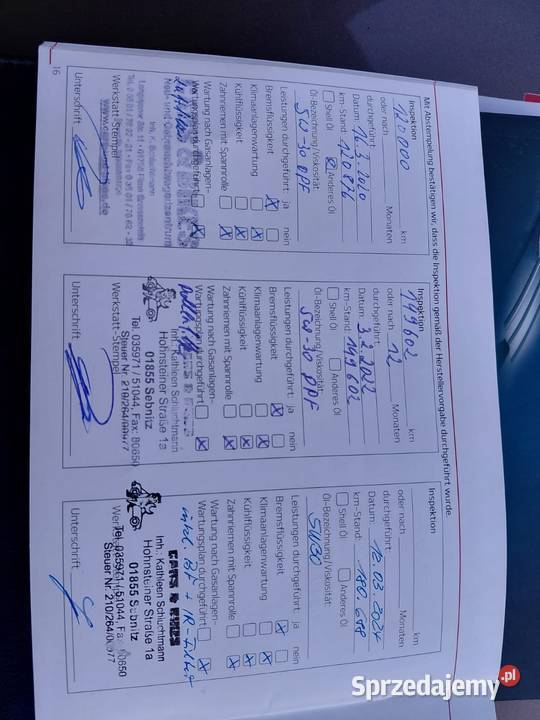 Mit Abstempelung bestätigen wir, dass die Inspektion gemäß der Herstellervorgabe durchgeführt wurde.
Inspektion
120000 km
oder nach Monaten
durchgeführt
Datum: 16.3.2020
km-Stand: 120 876
Öl-Bezeichnung/Viskosität:
Shell Öl Anderes Öl
5W-30 DPF
Leistungen durchgeführt: ja nein
Bremsflüssigkeit
Klimaanlagenwartung
Kühlflüssigkeit
Zahnriemen mit Spannrolle
Wartung nach Gasanlagen-
Werkstatt-Stempel
Unterschrift
16
Inspektion
149602 km
oder nach 12 Monaten
durchgeführt:
Datum: 3.2.2022
km-Stand: 149 602
Öl-Bezeichnung/Viskosität:
Shell Öl Anderes Öl
5W-30 DPF
Leistungen durchgeführt: ja nein
Bremsflüssigkeit
Klimaanlagenwartung
Kühlflüssigkeit
Zahnriemen mit Spannrolle
Wartung nach Gasanlagen-
Wartungsplan durchgeführt
Inh.: Kathleen Schluchtmann
Hohnsteiner Straße 1a
01855 Sebnitz
Tel. 035971/51044, Fax: 80650
Steuer Nr. 210/264/00977
Werkstatt-Stempel
Unterschrift
Inspektion
km
oder nach Monaten
durchgeführt
Datum: 12.03.2024
km-Stand: 180.698
Öl-Bezeichnung/Viskosität:
Shell Öl Anderes Öl
5W30
Leistungen durchgeführt: ja nein
Bremsflüssigkeit
Klimaanlagenwartung
Kühlflüssigkeit
Zahnriemen mit Spannrolle
Wartung nach Gasanlagen-
Wartungsplan durchgeführt
Inh.: Kathleen Schluchtmann
Hohnsteiner Straße 1a
01855 Sebnitz
Tel. 035971/51044, Fax: 80650
Steuer Nr. 210/264/00977
Unterschrift
Sprzedajemy.pl